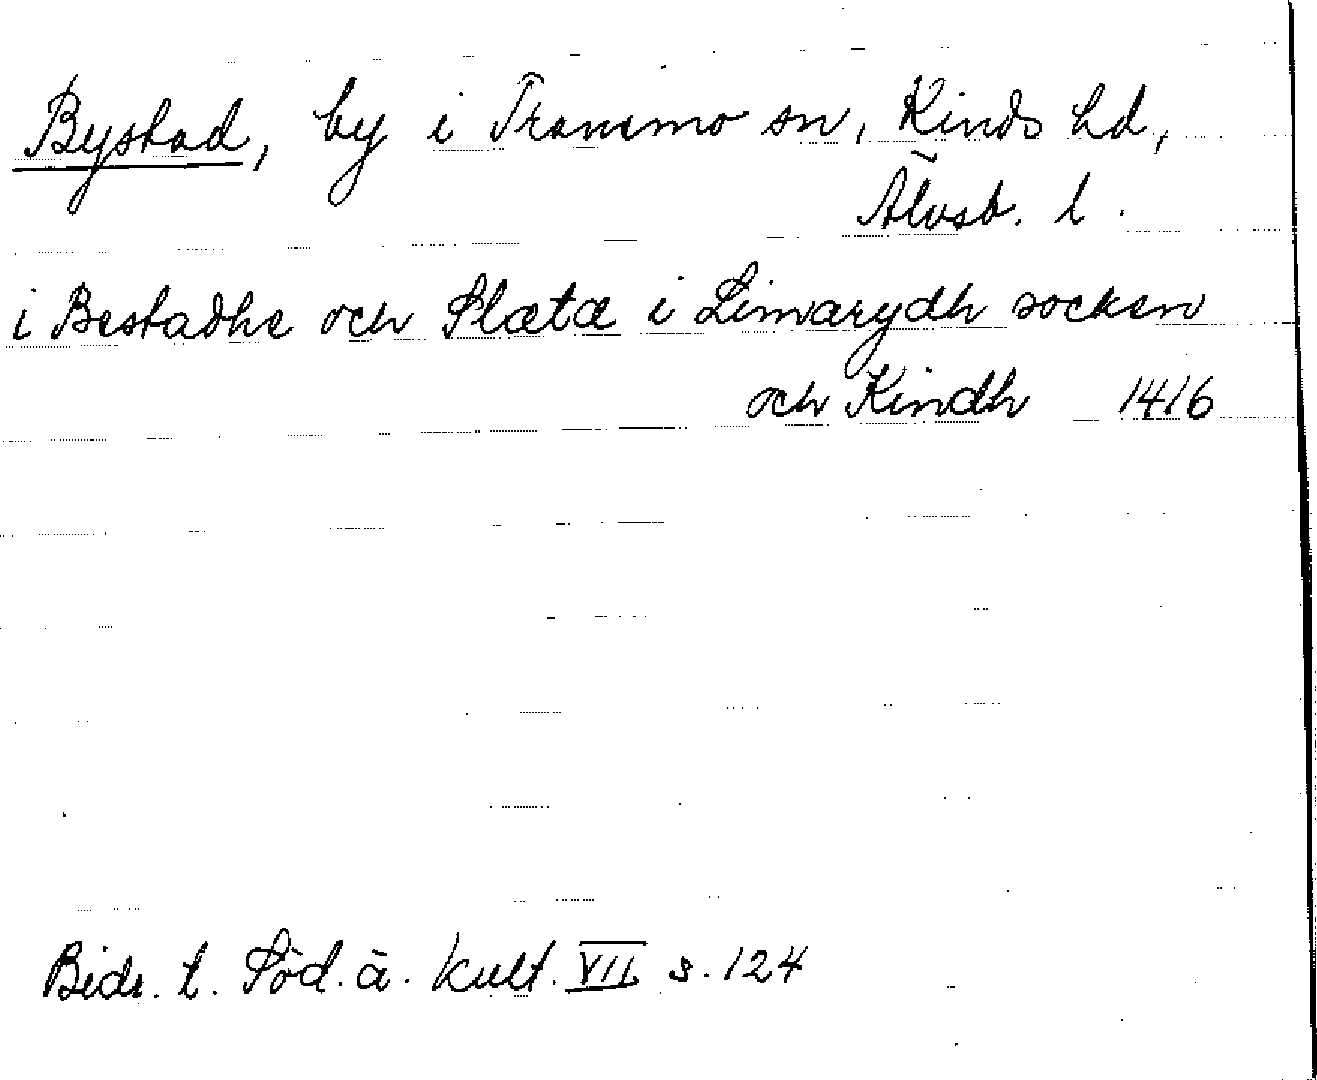 Bystad, by i Tranemo sn, Kinds hd,
Älvsb. l.
i Bestadhe och Slætæ i Limarydh socken
och Kindh 1416
Bidr. t. Söd. ä. kult. VII s. 124